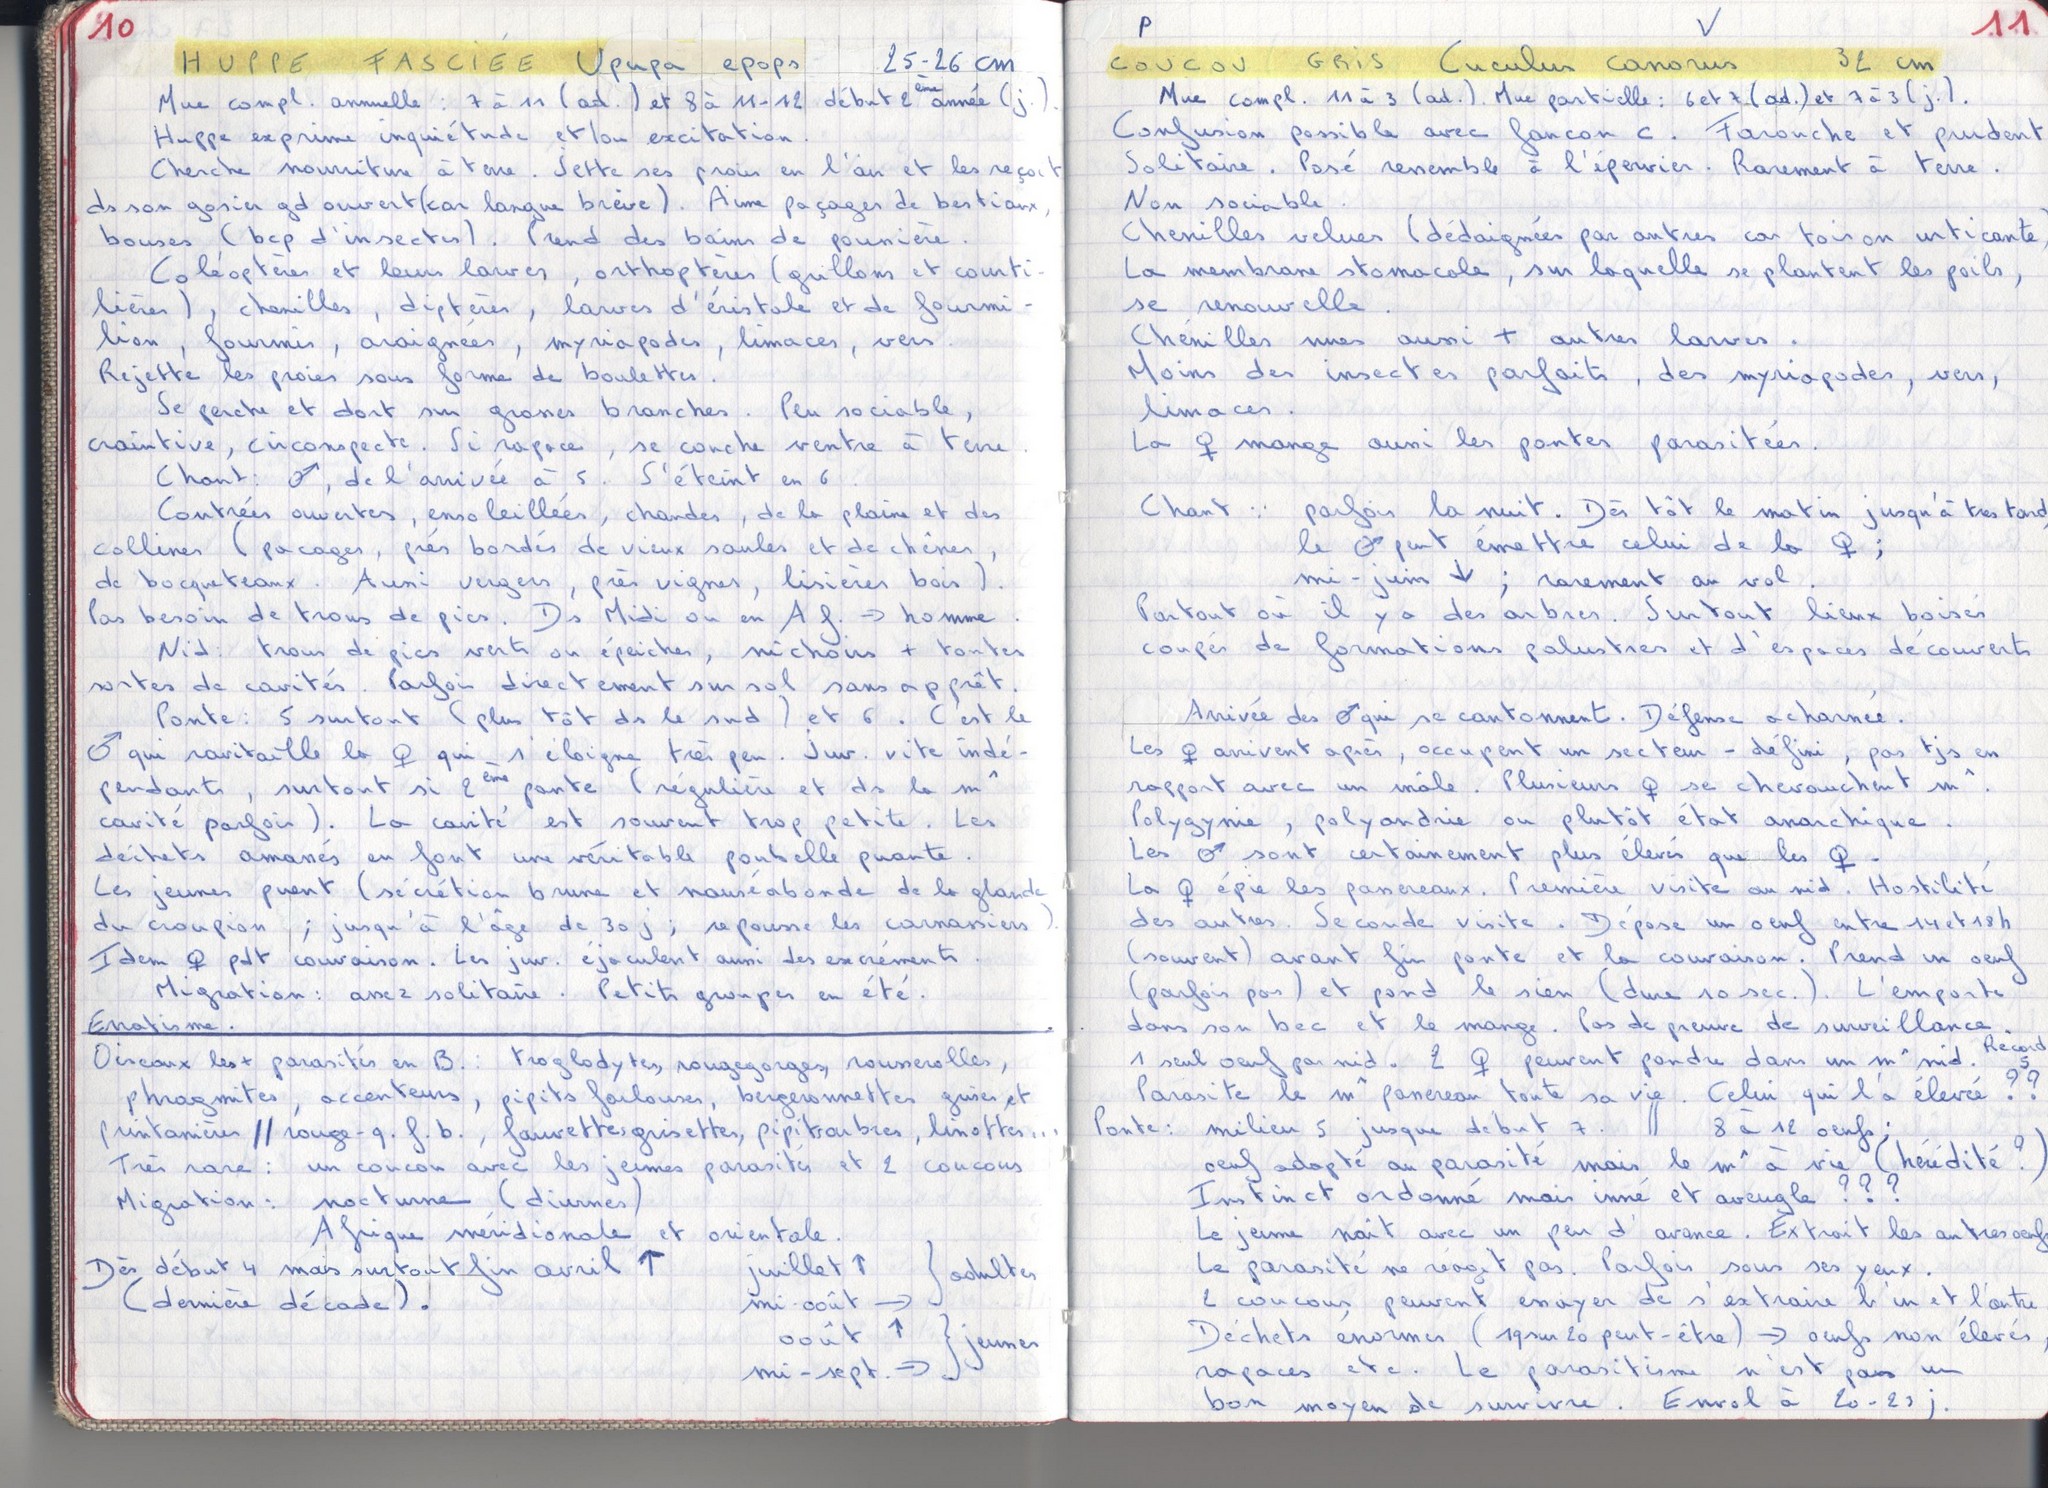 10
HUPPE FASCIÉE Upupa epops 25-26 cm
Mue compl. annuelle : 7 à 11 (ad.) et 8 à 11-12 début 2ème année (j.).
Huppe exprime inquiétude et/ou excitation.
Cherche nourriture à terre. Jette ses proies en l'air et les reçoit
ds son gosier gd ouvert (car langue brève). Aime paçages de bestiaux,
bouses (bcp d'insectes). Prend des bains de poussière.
Coléoptères et leurs larves, orthoptères (grillons et courti-
lières), chenilles, diptères, larves d'éristale et de fourmi-
lion, fourmis, araignées, myriapodes, limaces, vers.
Rejette les proies sous forme de boulettes.
Se perche et dort sur grosses branches. Peu sociable,
craintive, circonspecte. Si rapace, se couche ventre à terre.
Chant : ♂, de l'arrivée à 5. S'éteint en 6.
Contrées ouvertes, ensoleillées, chaudes, de la plaine et des
collines (pacages, prés bordés de vieux saules et de chênes,
de bocqueteaux. Aussi vergers, près vignes, lisières bois).
Pas besoin de trous de pics. Ds Midi ou en Af. → homme.
Nid : trous de pics verts ou épeiches, nichoirs + toutes
sortes de cavités. Parfois directement sur sol sans apprêt.
Ponte : 5 surtout (plus tôt ds le sud) et 6. C'est le
♂ qui ravitaille la ♀ qui s'éloigne très peu. Juv. vite indé-
pendants, surtout si 2ème ponte (régulière et ds la m^
cavité parfois). La cavité est souvent trop petite. Les
déchets amassés en font une véritable poubelle puante.
Les jeunes puent (sécrétion brune et nauséabonde de la glande
du croupion ; jusqu'à l'âge de 30 j ; repousse les carnassiers).
Idem ♀ pdt couvaison. Les juv. éjaculent aussi des excréments.
Migration : assez solitaire. Petits groupes en été.
Erratisme.
Oiseaux les + parasités en B. : troglodytes, rougegorges, rousserolles,
phragmites, accenteurs, pipits farlouses, bergeronnettes grises et
printanières // rouge-q. f. b., fauvettes grisettes, pipit arbres, linottes...
Très rare : un coucou avec les jeunes parasités et 2 coucous
Migration : nocturne (diurnes)
Afrique méridionale et orientale.
Dès début 4 mais surtout fin avril ↑ juillet ↑ } adultes
(dernière décade). mi-août →
août ↑ } jeunes
mi-sept. →
P V 11
COUCOU GRIS Cuculus canorus 32 cm
Mue compl. 11 à 3 (ad.). Mue partielle : 6 et 7 (ad.) et 7 à 3 (j.).
Confusion possible avec faucon c. Farouche et prudent
Solitaire. Posé ressemble à l'épervier. Rarement à terre.
Non sociable.
Chenilles velues (dédaignées par autres car toison urticante)
La membrane stomacale, sur laquelle se plantent les poils,
se renouvelle.
Chenilles nues aussi + autres larves.
Moins des insectes parfaits, des myriapodes, vers,
limaces.
La ♀ mange aussi les pontes parasitées.
Chant : parfois la nuit. Dès tôt le matin jusqu'à très tard,
le ♂ peut émettre celui de la ♀ ;
mi-juin ↓ ; rarement au vol.
Partout où il y a des arbres. Surtout lieux boisés
coupés de formations palustres et d'espaces découverts
Arrivée des ♂ qui se cantonnent. Défense acharnée.
Les ♀ arrivent après, occupent un secteur - défini, pas tjs en
rapport avec un mâle. Plusieurs ♀ se chevauchent m^.
Polygynie, polyandrie ou plutôt état anarchique.
Les ♂ sont certainement plus élevés que les ♀.
La ♀ épie les passereaux. Première visite au nid. Hostilité
des autres. Seconde visite. Dépose un oeuf entre 14 et 18h
(souvent) avant fin ponte et la couvaison. Prend un oeuf
(parfois pas) et pond le sien (dure 10 sec.). L'emporte
dans son bec et le mange. Pas de preuve de surveillance.
1 seul oeuf par nid. 2 ♀ peuvent pondre dans un m^ nid. Record 5
Parasite le m^ passereau toute sa vie. Celui qui l'a élevée ??
Ponte : milieu 5 jusque début 7. // 8 à 12 oeufs ;
oeuf adapté au parasité mais le m^ à vie (hérédité ?)
Instinct ordonné mais inné et aveugle ???
Le jeune naît avec un peu d'avance. Extrait les autres oeufs
Le parasité ne réagit pas. Parfois sous ses yeux.
2 coucous peuvent essayer de s'extraire l'un et l'autre.
Déchets énormes (19 sur 20 peut-être) → oeufs non élevés,
rapaces etc. Le parasitisme n'est pas un
bon moyen de survivre. Envol à 20-23 j.